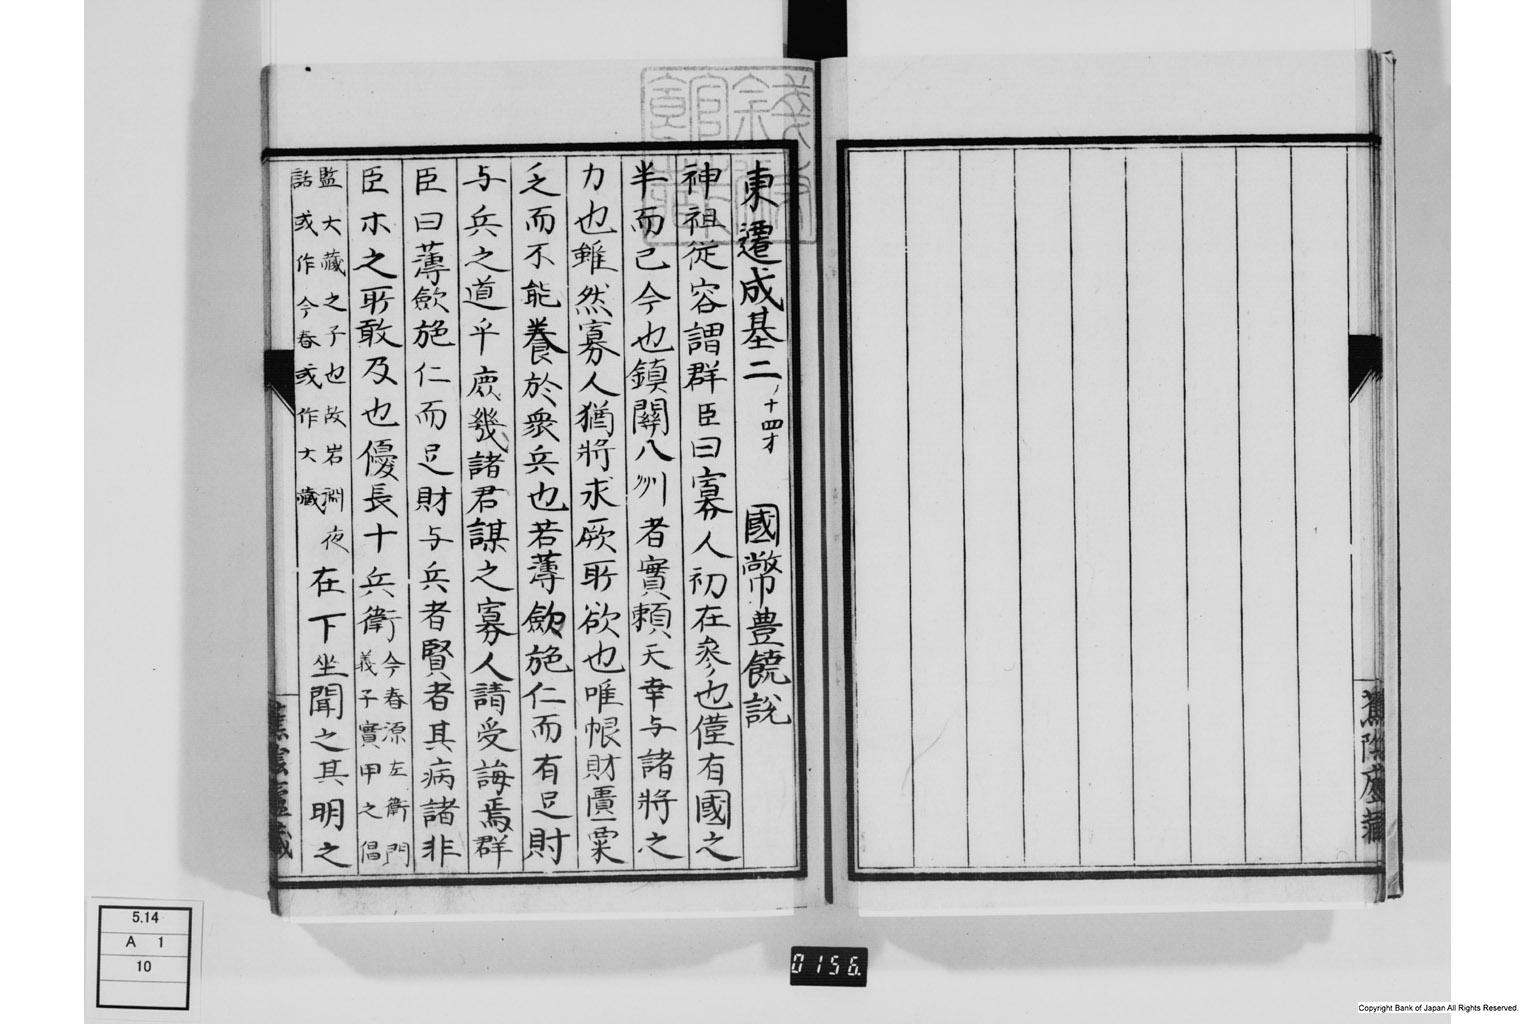 東遷成基二 十四才 國幣豊饒說
神祖従容謂群臣曰寡人初在參也僅有國之
半而已今也鎮關八州者實頼天幸与諸将之
力也雖然寡人猶将求厥所欲也唯恨財匱粟
乏而不能養於衆兵也若薄歛施仁而有足財
与兵之道乎庻幾諸君謀之寡人請受誨焉群
臣曰薄歛施仁而足財与兵者賢者其病諸非
臣木之所敢及也優長十兵衛今春源左衛門
義子實甲之倡
監大藏之子也故岩淵夜
話或作今春或作大藏
在下坐聞之其明之
舊陰廬藏
5.14
A 1
10
0156
Copyright Bank of Japan All Rights Reserved.